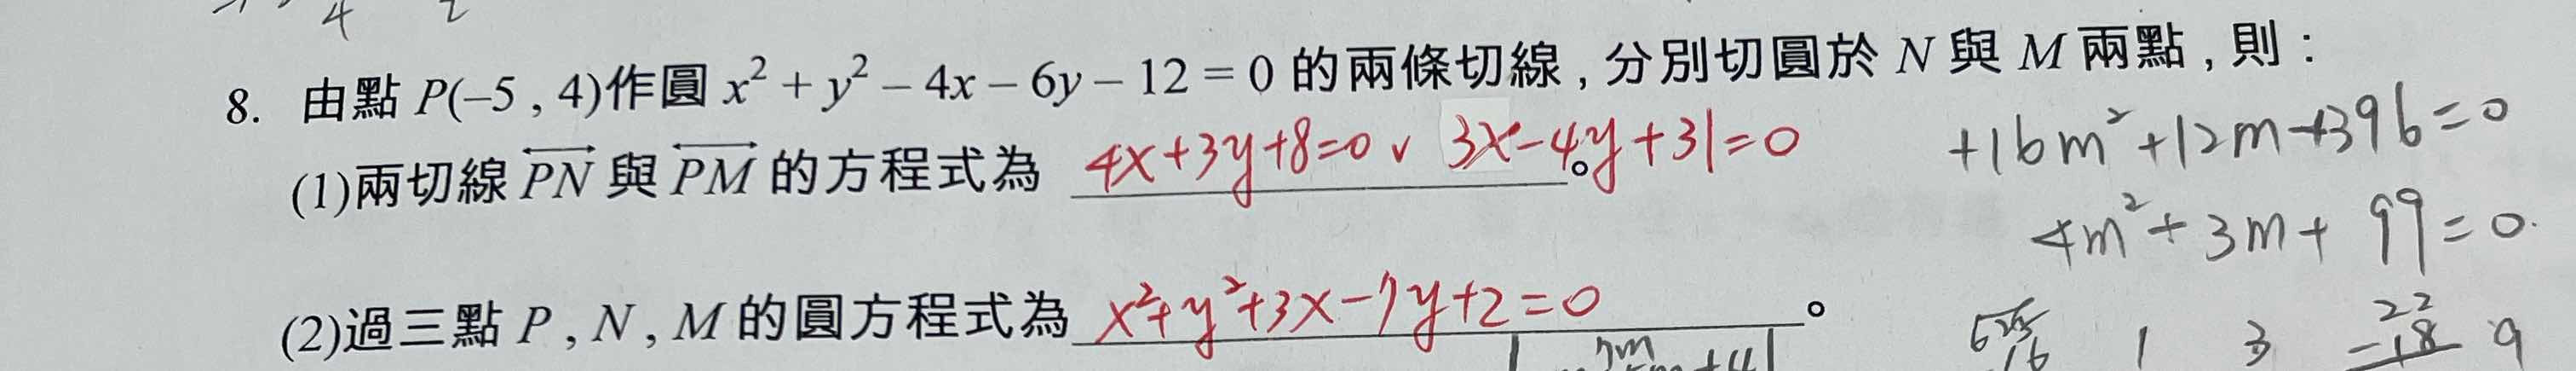 4 2
8. 由點 P(–5 , 4)作圓 x² + y² – 4x – 6y – 12 = 0 的兩條切線 , 分別切圓於 N 與 M 兩點 , 則 :
(1)兩切線 PN 與 PM 的方程式為 4x+3y+8=0 v 3x-4y+31=0 。
+16m²+12m+396=0
4m²+3m+99=0.
(2)過三點 P , N , M 的圓方程式為 x²+y²+3x-7y+2=0 。
16 1 3 22
-18 9